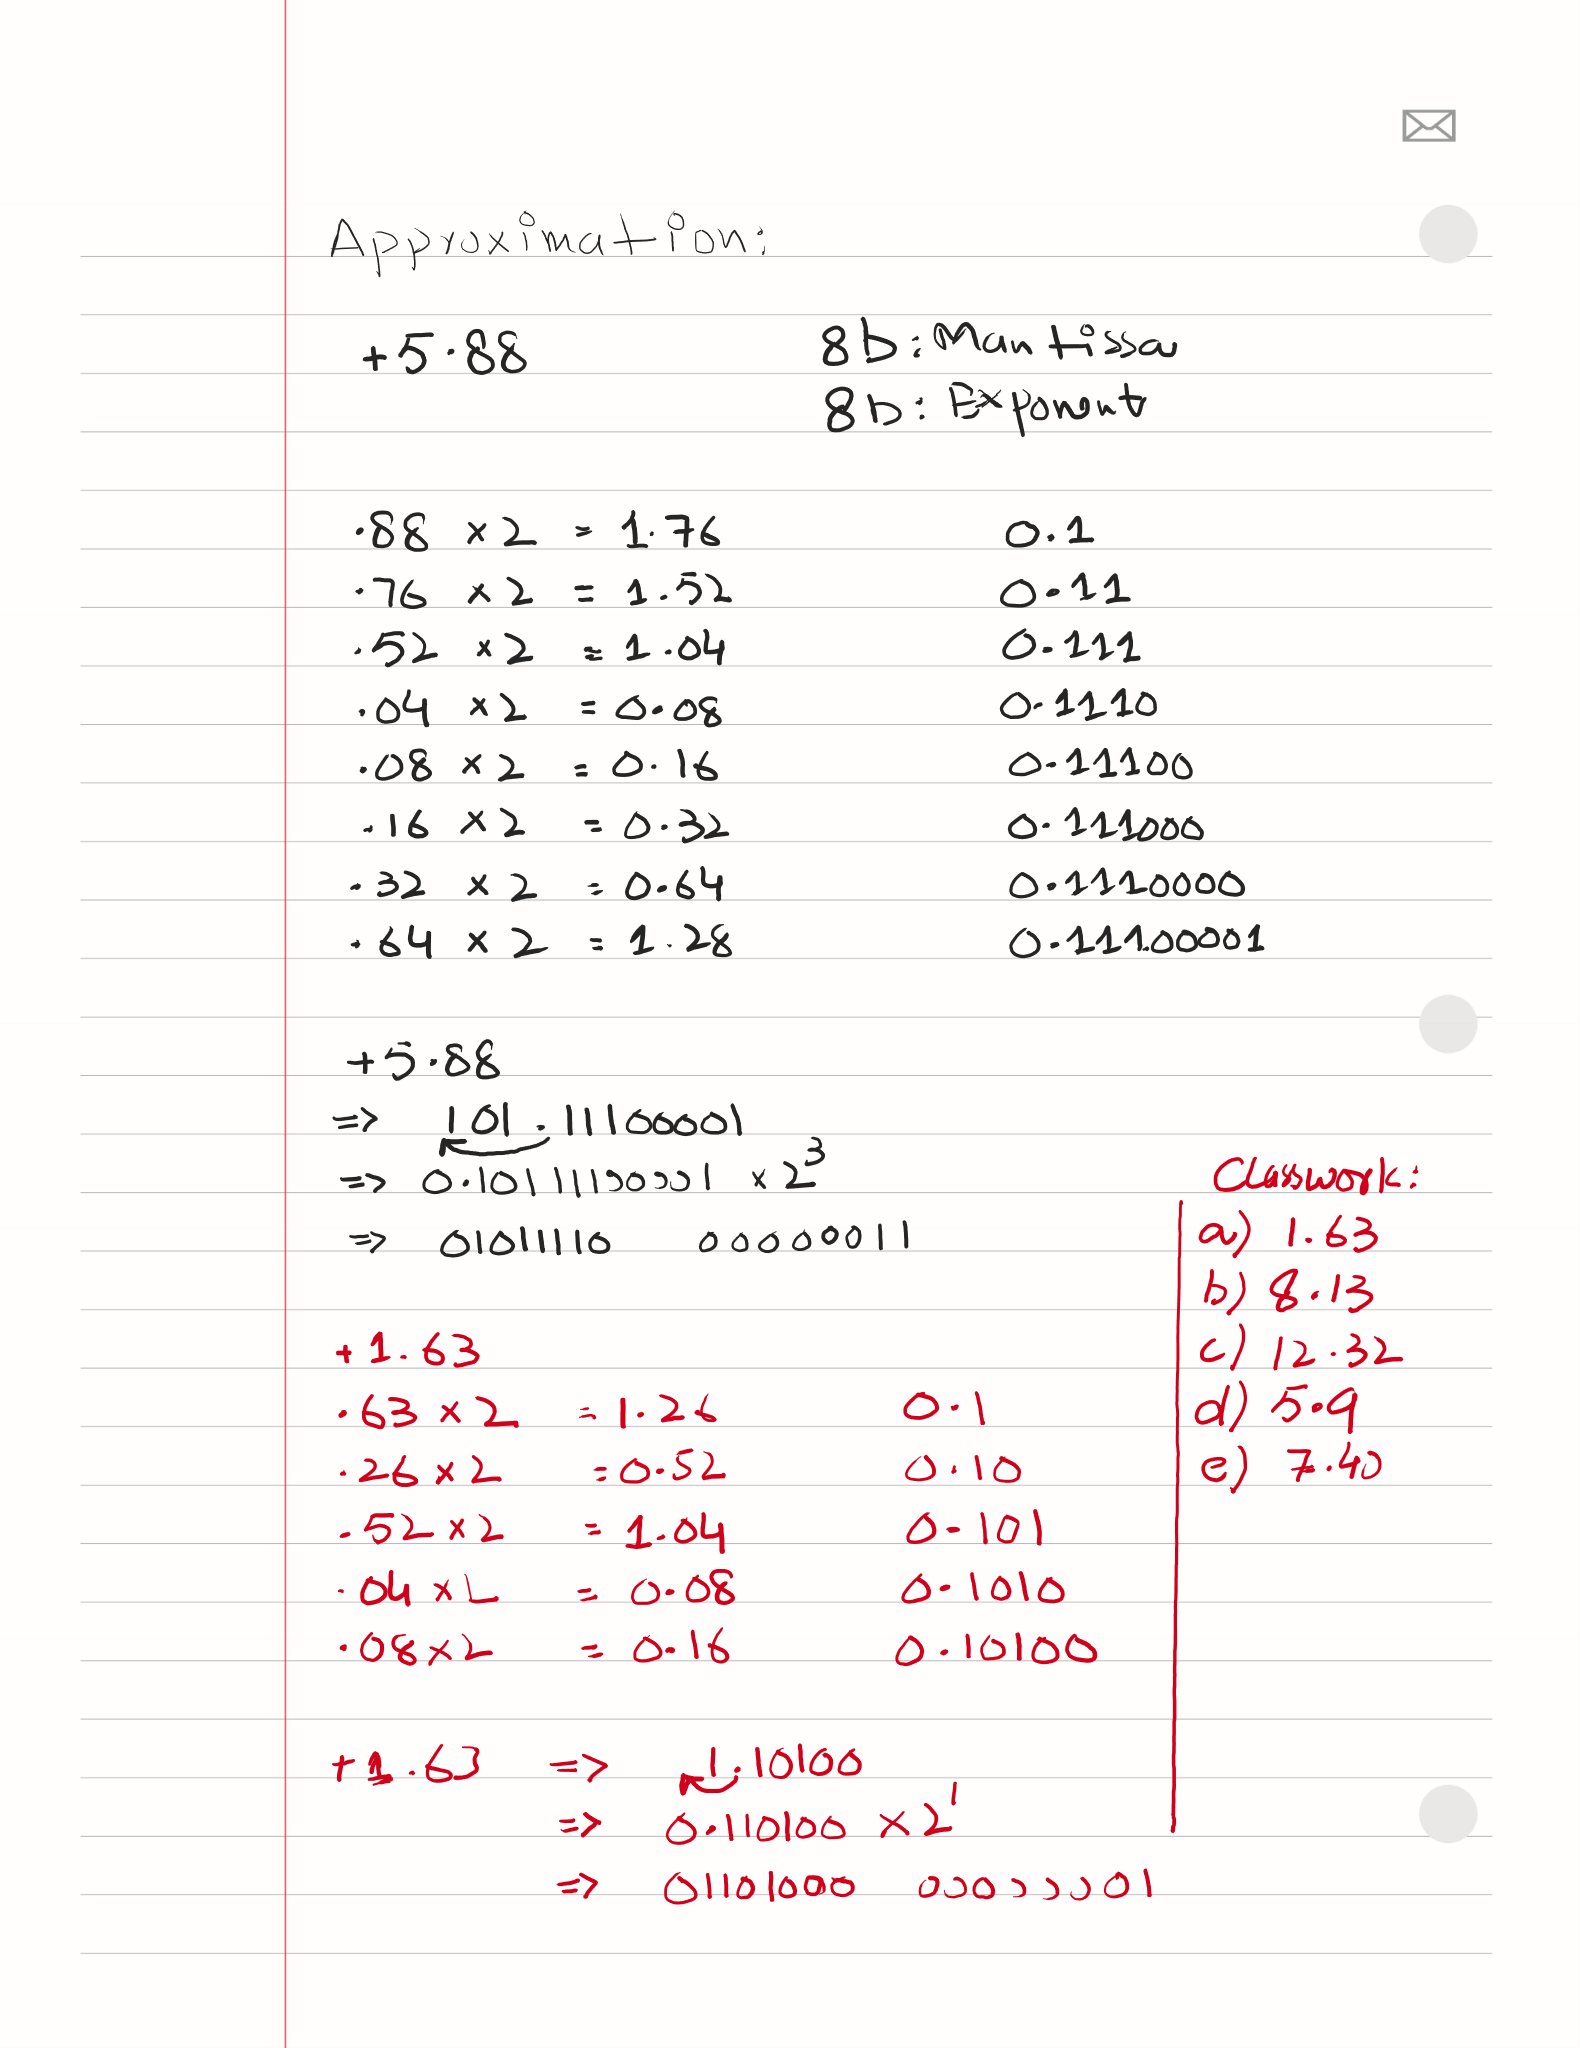 Approximation:
+5.88 8b: Mantissa
8b: Exponent
.88 × 2 = 1.76 0.1
.76 × 2 = 1.52 0.11
.52 × 2 = 1.04 0.111
.04 × 2 = 0.08 0.1110
.08 × 2 = 0.16 0.11100
.16 × 2 = 0.32 0.111000
.32 × 2 = 0.64 0.1110000
.64 × 2 = 1.28 0.11100001
+5.88
=> 101.11100001
=> 0.10111100001 × 2³
=> 01011110 00000011
+1.63
.63 × 2 = 1.26 0.1
.26 × 2 = 0.52 0.10
.52 × 2 = 1.04 0.101
.04 × 2 = 0.08 0.1010
.08 × 2 = 0.16 0.10100
+1.63 => 1.10100
=> 0.110100 × 2¹
=> 01101000 00000001
Classwork:
a) 1.63
b) 8.13
c) 12.32
d) 5.9
e) 7.40